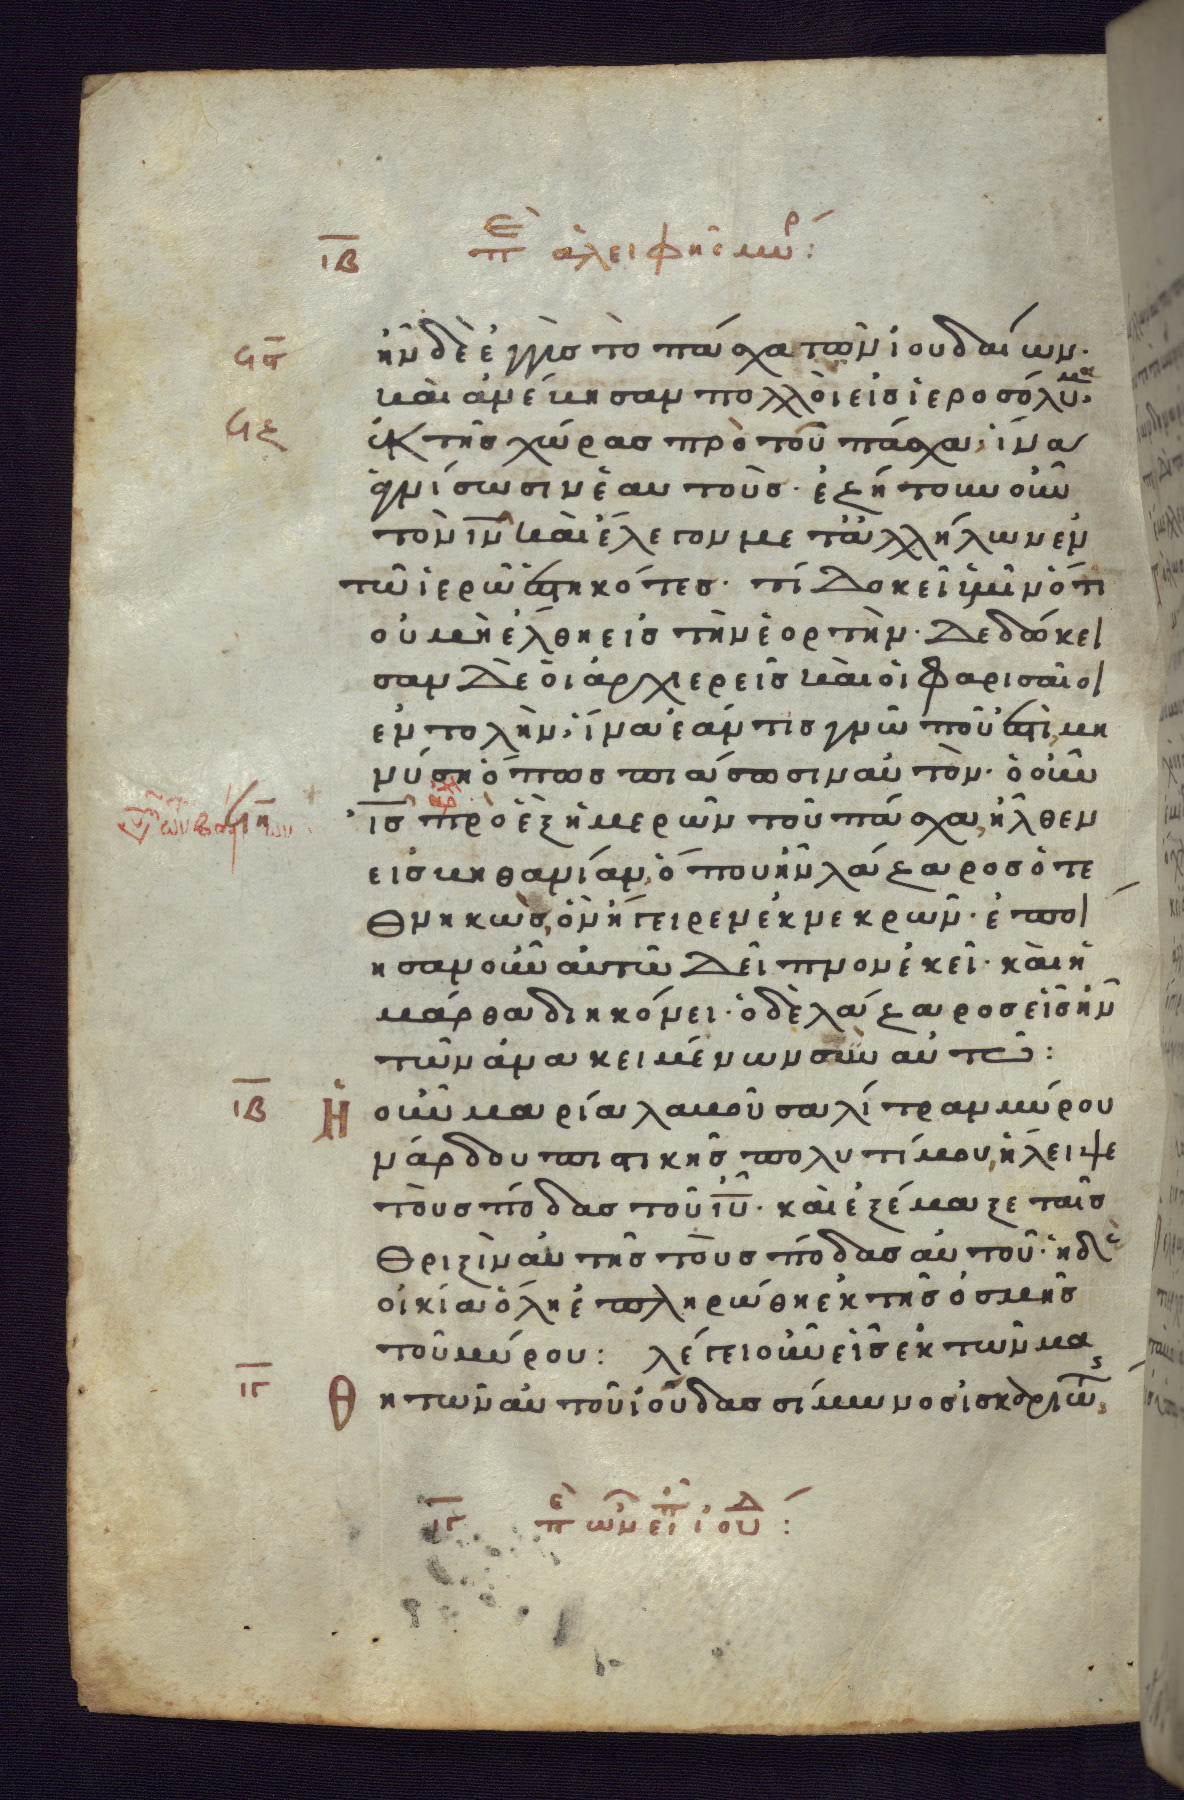 ιβ πε ἀλειφης μυρ:
ἦν δὲ ἐγγὺς τὸ πάσχα τῶν ἰουδαίων·
καὶ ἀνέβησαν πολλοὶ εἰς ἱεροσόλυμα
ἐκ τῆς χώρας πρὸ τοῦ πάσχα, ἵνα
ἁγνίσωσιν ἑαυτούς· ἐζήτουν οὖν
τὸν ιν καὶ ἔλεγον μετ ἀλλήλων ἐν
τῶ ἱερῶ ἑστηκότες· τί δοκεῖ ὑμῖν ὅτι
οὐ μὴ ἔλθη εἰς τὴν ἑορτήν· δεδώκει
σαν δὲ οἱ ἀρχιερεῖς καὶ οἱ φαρισαῖοι
ἐντολὴν, ἵνα ἐάν τις γνῶ ποῦ ἐστι, μη
νύση ὅπως πιάσωσιν αὐτόν· ὁ οὖν
ιϛ πρὸ ἓξ ἡμερῶν τοῦ πάσχα, ἦλθεν
εἰς βηθανίαν, ὅπου ἦν λάζαρος ὁ τε
θνηκὼς, ὃν ἤγειρεν ἐκ νεκρῶν· ἐποί
ησαν οὖν αὐτῶ δεῖπνον ἐκεῖ· καὶ ἡ
μάρθα διηκόνει· ὁ δὲ λάζαρος εἷς ἦν
τῶν ἀνακειμένων σὺν αὐτῶ:
ιβ Ἡ οὖν μαρία λαβοῦσα λίτραν μύρου
νάρδου πιστικῆς πολυτίμου, ἤλειψε
τοὺς πόδας τοῦ ιυ· καὶ ἐξέμαξε ταῖς
θριξὶν αὐτῆς τοὺς πόδας αὐτοῦ· ἡ δὲ
οἰκία ὅλη ἐπληρώθη ἐκ τῆς ὀσμῆς
τοῦ μύρου: λέγει οὖν εἷς ἐκ τῶν μα
ιγ Θητῶν αὐτοῦ ἰούδας σίμωνος ἰσκαριώτης,
ιγ πε ὧν εἶπ ἰουδ: